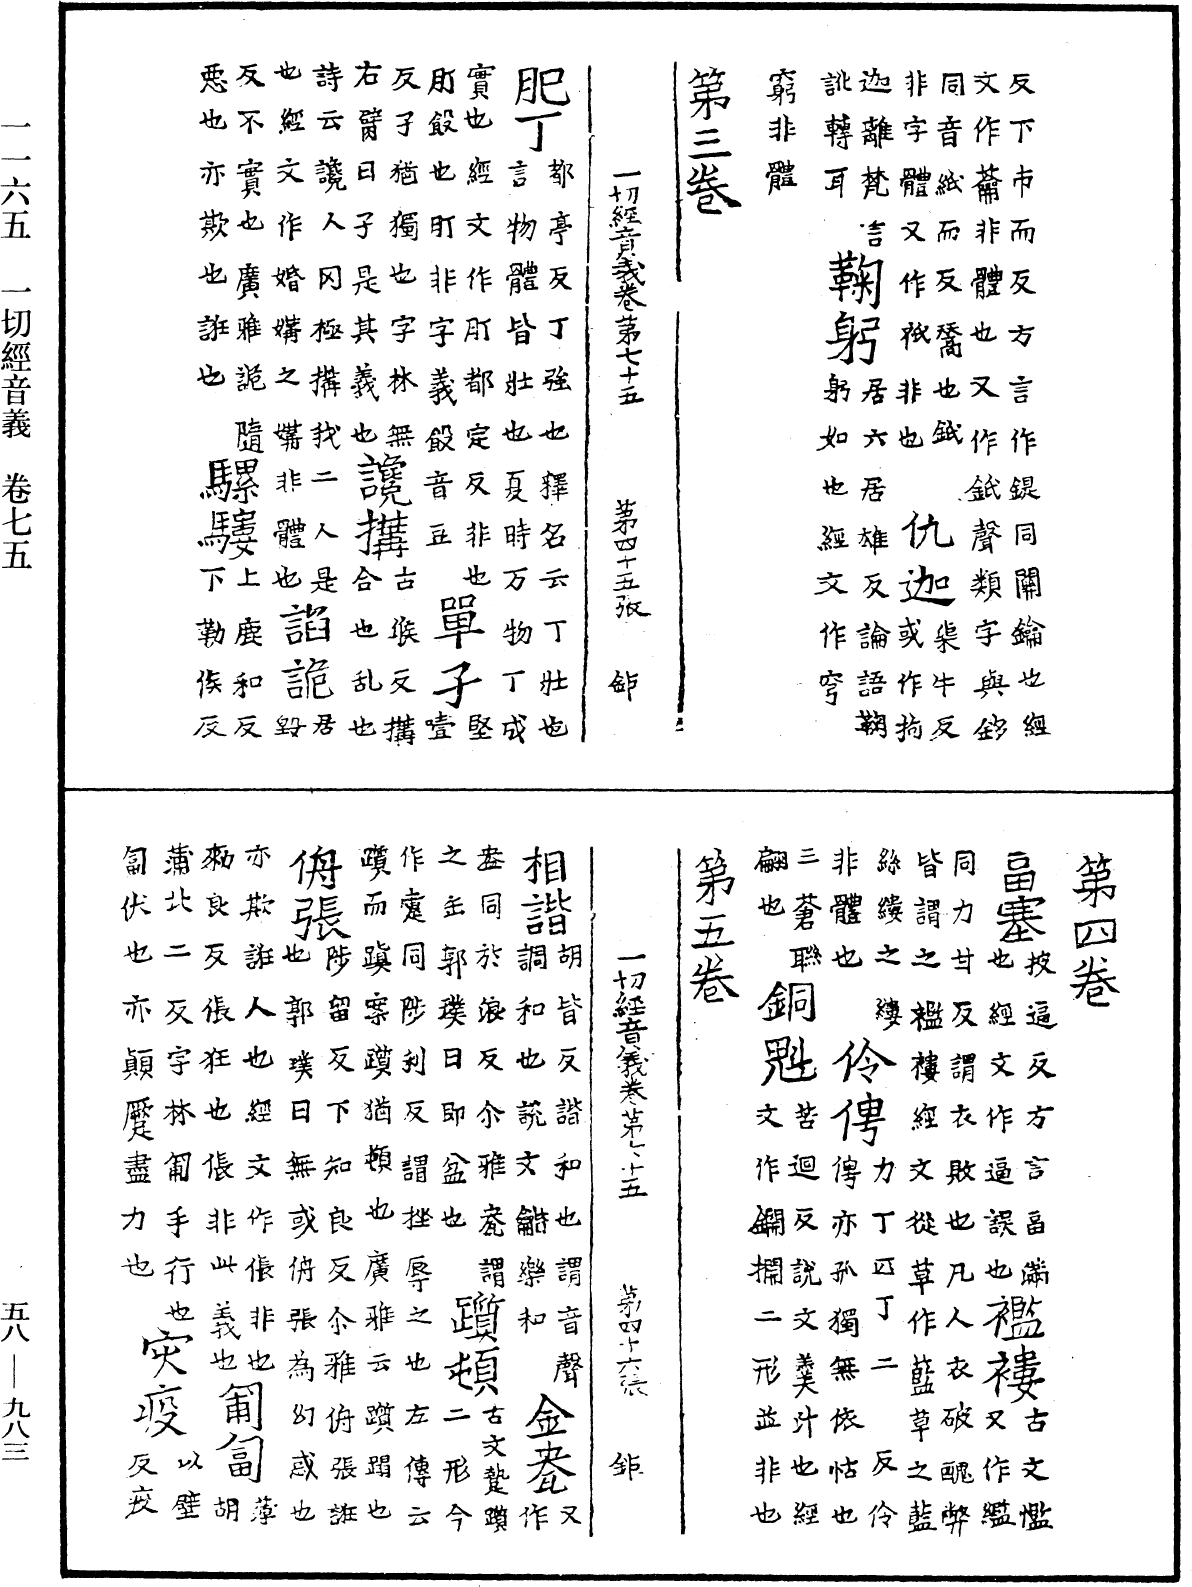 反下市而反方言作鍉同關鑰也經
文作蘥非體也又作鈋聲類字與鈔
同音紙而反觿也鈋柒牛反
非字體又作衹非也仇迦或作拘
迦離梵言鞠躬居六居雄反論語鞠
訛轉耳躬如也經文作穹
窮非體
第三卷
一切經音義卷第七十五 第四十五張 鉅
肥丁都亭反丁強也釋名云丁壯也
言物體皆壯也夏時万物丁成
實也經文作肎都定反非也單孑堅
肎飣也盯非字義飣音豆壹
反孑猶獨也字林無古猴反搆
右臂曰孑是其義也讒搆合也乱也
詩云讒人罔極搆我二人是諂詭居
也經文作婚媾之媾非體也毀
反不實也廣雅詭隨騾驉上鹿和反
惡也亦欺也誑也下勒侯反
第四卷
畐塞披逼反方言畐滿也經文作逼誤也
襤褸古文懢又作繿
同力甘反謂衣敗也凡人衣破醜弊
皆謂之襤褸經文從草作藍草之藍
絲縷之縷伶俜力丁匹丁二反伶
非體也俜亦孤獨無依怙也
三蒼聯翩也銅魁苦迴反說文羹斗也經
文作鋼擱二形並非也
第五卷
一切經音義卷第七十五 第四十六張 鉅
相諧胡皆反諧和也謂音聲
調和也說文龤樂和
金瓫又作
盎同於浪反尒雅瓫謂
之缶郭璞曰即盆也
躓頓古文躓二形今
作疐同陟利反謂挫辱之也左傳云
躓而蹎案躓猶頓也廣雅云躓蹋也
侜張陟留反下知良反尒雅侜張誑
也郭璞曰無或侜張為幻惑也
亦欺誑人也經文作倀非也
勑良反倀狂也倀非此義也匍匐薄胡
蒲北二反字林匍手行也
匐伏也亦顛蹷盡力也
灾疫以壁反疫
一一六五 一切經音義 卷七五
五八—九八三